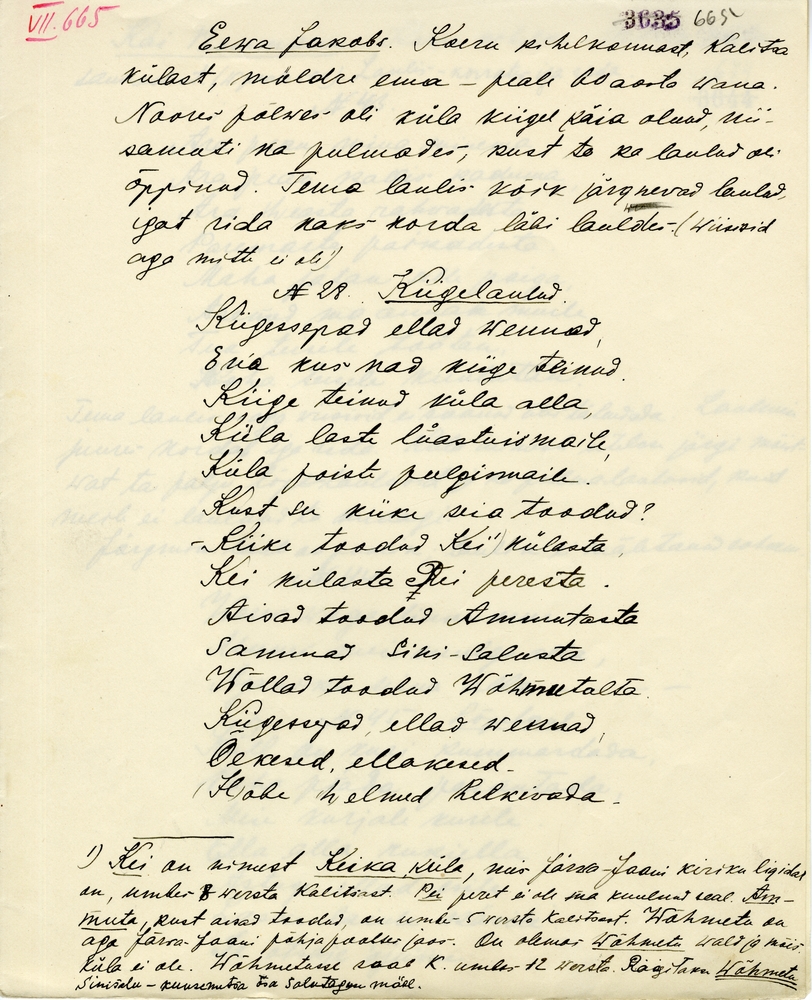 VII. 665
3635 665
Eewa Jakobs. Koeru kihelkonnast, Kalitsa
külast, möldre ema – peale 60 aasta wana.
Noores põlwes oli küla kiigel käia olnud, nii-
samuti ka pulmades, kust ta ka laulud oli
õppinud. Tema laulis kõik järgnevad laulud,
igat rida kaks korda läbi lauldes – (wiisisid
aga mitte ei oli)
№ 28. Kiigelaulud.
Kiigessepad ellad wennad,
Eria kus nad kiige teinud.
Kiige teinud küla alla,
Küla laste lüastuismaile,
Küla poiste pulgismaile.
Kust su kiike seia toodud?
– Kiike toodud Kei ¹) külasta,
Kei külasta Pei peresta.
Aisad toodud Ammutasta
Sammad Sini-Salusta
Wõllad toodud Wõhmutalta.
Kiigessepad, ellad wennad,
Õekesed, ellakesed –
(H)õbe helmed kelkivada –
¹) Kei on nimest Keika küla, mis Järwa-Jaani kiriku ligidal
on, umbes 8 wersta Kalitsast. Pei peret ei ole ma kuulnud seal. Am-
muta, kust aisad toodud, on umbes 5 wersta Kalitsast. Wõhmetu on
aga Järwa-Jaani põhjapooltes jaos. On olemas Wõhmetu wald ja mõis
küla ei ole. Wõhmetusse saab K. umbes 12 wersta. Räägitakse Wõhmetu
Sinisalu – kuusemetsa tsa Salutaguse mõis.